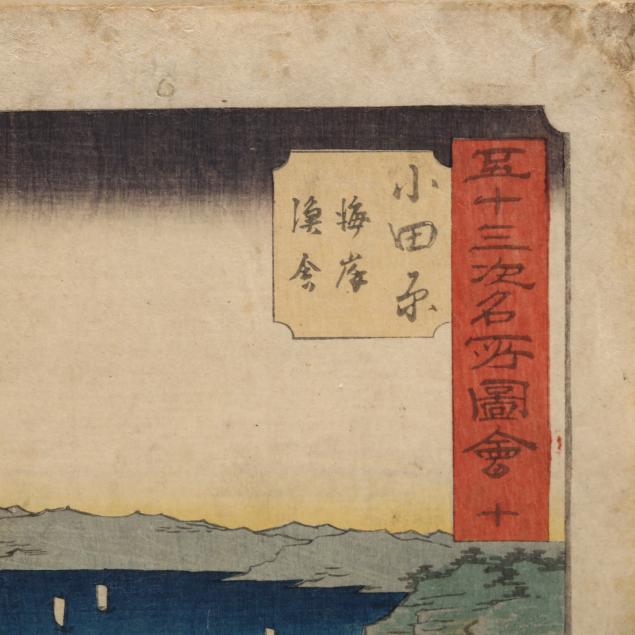 五十三次名所圖會 十
小田原
海岸
漁舎